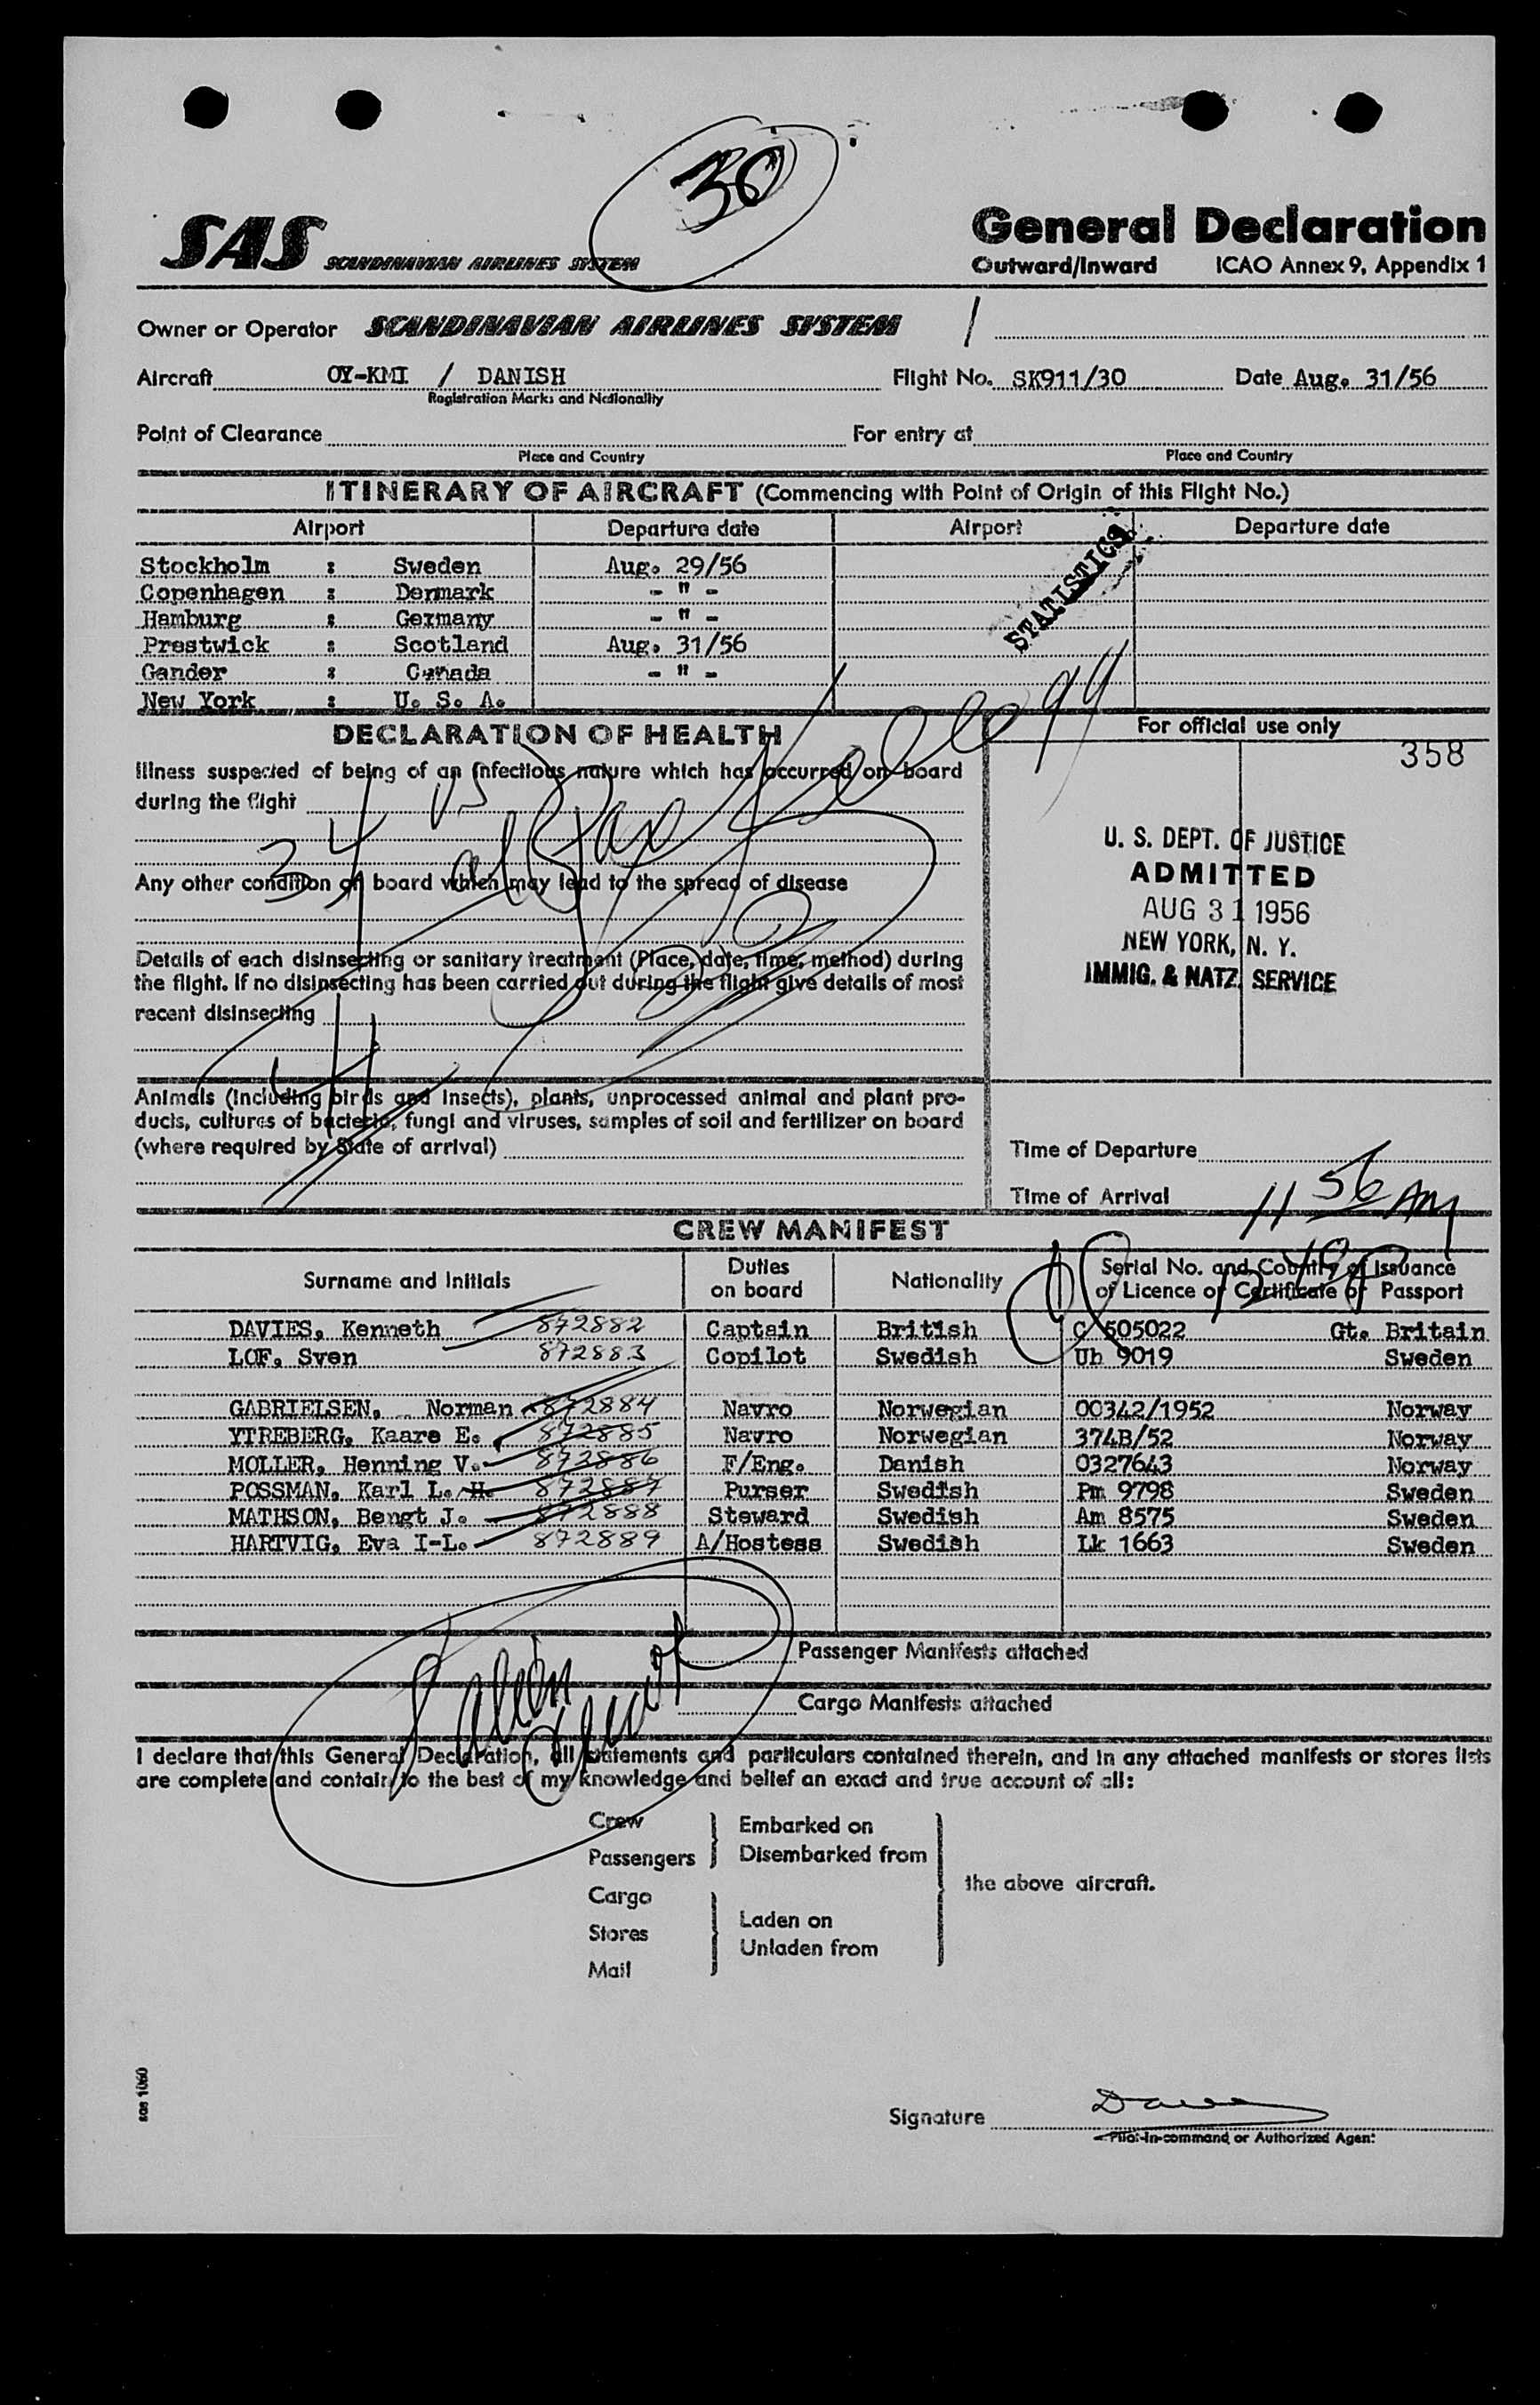 30
SAS SCANDINAVIAN AIRLINES SYSTEM
General Declaration
Outward/Inward ICAO Annex 9, Appendix 1
Owner or Operator SCANDINAVIAN AIRLINES SYSTEM /
Aircraft OY-KMI / DANISH Flight No. SK911/30 Date Aug. 31/56
Registration Marks and Nationality
Point of Clearance For entry at
Place and Country Place and Country
ITINERARY OF AIRCRAFT (Commencing with Point of Origin of this Flight No.)
Airport Departure date Airport Departure date
Stockholm : Sweden Aug. 29/56
Copenhagen : Denmark - " -
Hamburg : Germany - " -
Prestwick : Scotland Aug. 31/56
Gander : Canada - " -
New York : U. S. A.
STATISTICS
DECLARATION OF HEALTH
For official use only
358
Illness suspected of being of an infectious nature which has occurred on board
during the flight
34
Any other condition on board which may lead to the spread of disease
Details of each disinsecting or sanitary treatment (Place, date, time, method) during
the flight. If no disinsecting has been carried out during the flight give details of most
recent disinsecting
U. S. DEPT. OF JUSTICE
ADMITTED
AUG 31 1956
NEW YORK, N. Y.
IMMIG. & NATZ. SERVICE
Animals (including birds and insects), plants, unprocessed animal and plant pro-
ducts, cultures of bacteria, fungi and viruses, samples of soil and fertilizer on board
(where required by State of arrival)
Time of Departure
Time of Arrival 11 56 AM
CREW MANIFEST
Surname and Initials Duties on board Nationality Serial No. and Country of Issuance of Licence or Certificate or Passport
DAVIES, Kenneth 872882 Captain British C 505022 Gt. Britain
LOF, Sven 872883 Copilot Swedish Uh 9019 Sweden
GABRIELSEN, Norman 872884 Navro Norwegian 00342/1952 Norway
YTREBERG, Kaare E. 872885 Navro Norwegian 374B/52 Norway
MOLLER, Henning V. 872886 F/Eng. Danish 0327643 Norway
POSSMAN, Karl L. H. 872887 Purser Swedish Pm 9798 Sweden
MATHSON, Bengt J. 872888 Steward Swedish Am 8575 Sweden
HARTVIG, Eva I-L. 872889 A/Hostess Swedish Lk 1663 Sweden
Passenger Manifests attached
Cargo Manifests attached
I declare that this General Declaration, all statements and particulars contained therein, and in any attached manifests or stores lists
are complete and contain to the best of my knowledge and belief an exact and true account of all:
Crew
Passengers
Embarked on
Disembarked from
the above aircraft.
Cargo
Stores
Mail
Laden on
Unladen from
sas 1060
Signature
Pilot-in-command or Authorized Agent